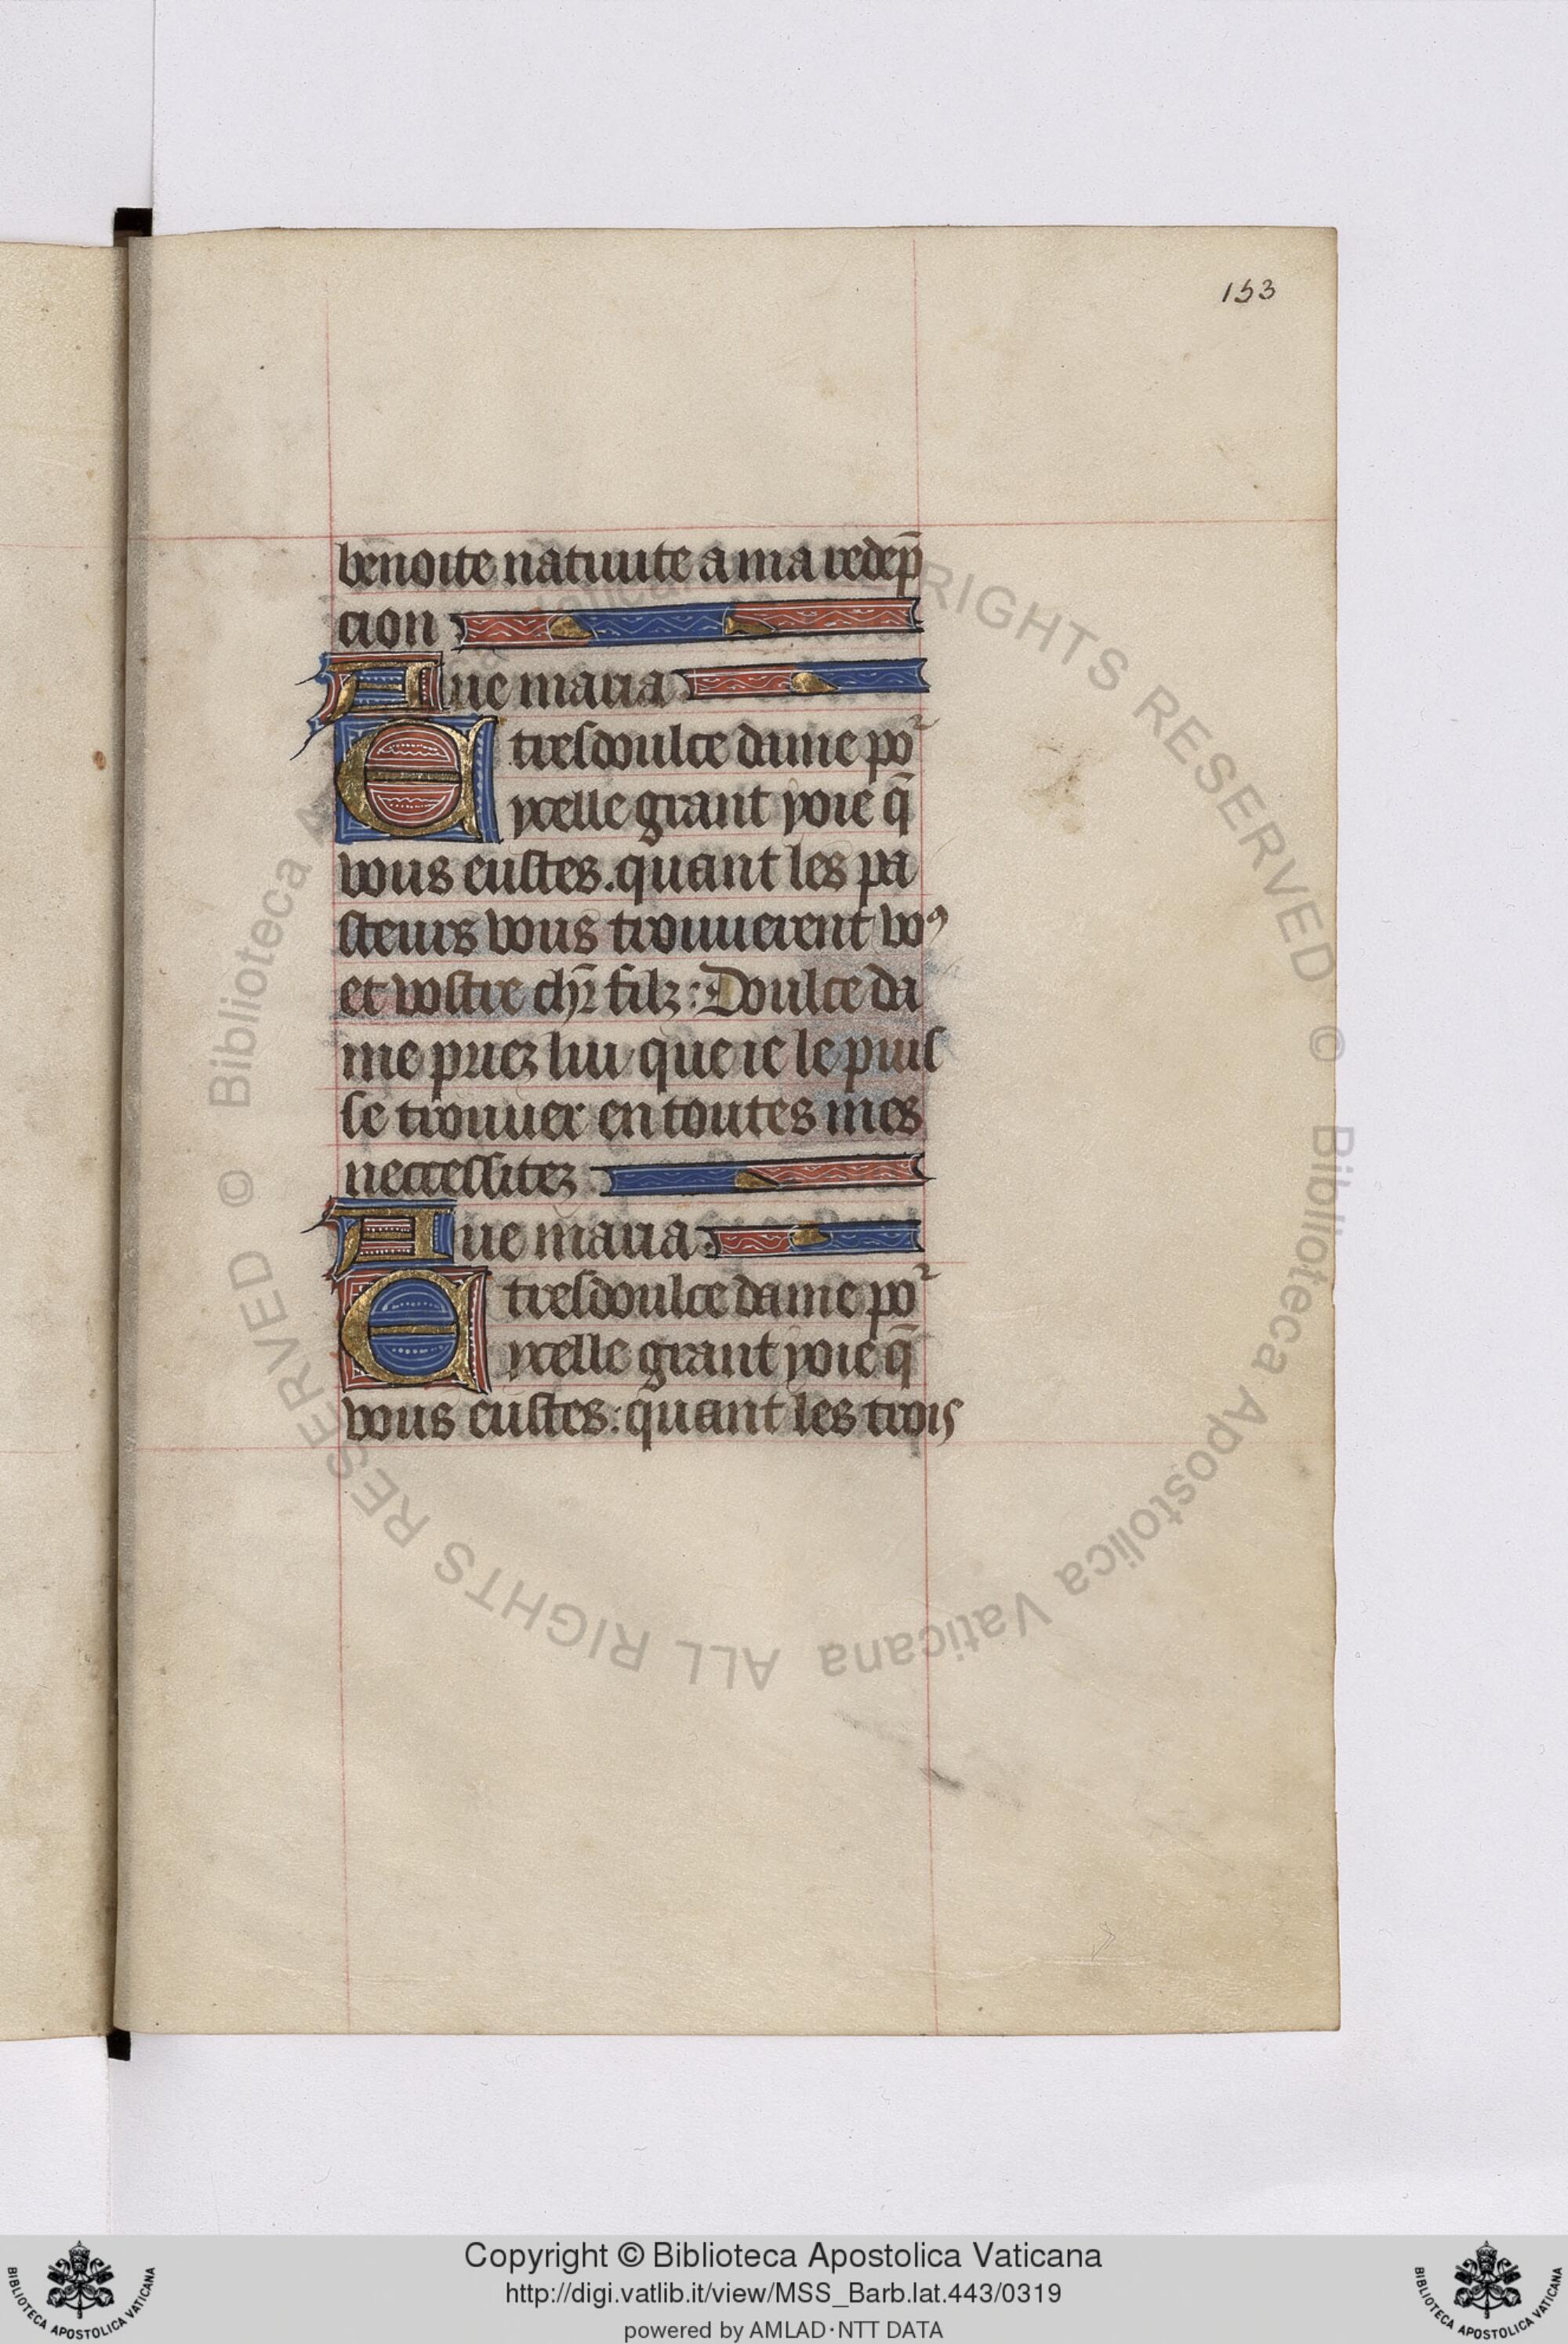 153
benoite natiuite a ma redep̄
cion
Aue maria
E tresdoulce dame po᷑
ycelle grant yoie q̄
vous eustes. quant les pa
steurs vous trouuerent voꝰ
et vostre chr̄ filz : Doulce da
me priez lui que ie le puis
se trouuer en toutes mes
neccessitez
Aue maria
E tresdoulce dame po᷑
ycelle grant yoie q̄
vous eustes : quant les trois
© Biblioteca Apostolica Vaticana ALL RIGHTS RESERVED © Biblioteca Apostolica Vaticana ALL RIGHTS RESERVED
Copyright © Biblioteca Apostolica Vaticana
http://digi.vatlib.it/view/MSS_Barb.lat.443/0319
powered by AMLAD·NTT DATA
BIBLIOTECA APOSTOLICA VATICANA
BIBLIOTECA APOSTOLICA VATICANA